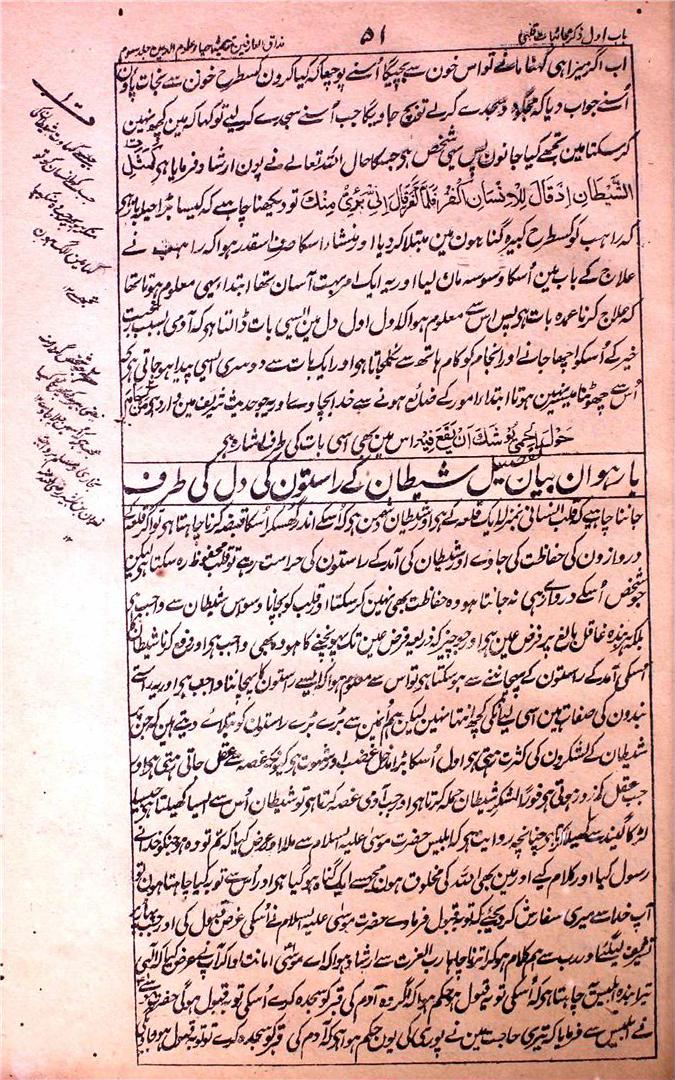 باب اول ذکر عجائبات قلبی
۵۱
مذاق العارفین ترجمہ احیاء علوم الدین جلد سوم
اب اگر میرا ہی کہنا مانے تو اس خون سے بچیگا اُسنے پوچھا کہ کیا کرون کسطرح خون سے نجات پاؤن
اُسنے جواب دیا کہ مجکو دو سجدے کر لے تو بچ جاویگا جب اُسنے سجدے کرلیے تو کہا کہ مین کچھ نہین
کر سکتا مین تجھے کیا جانون پس یہی شخص ہو جسکا حال اللہ تعالے نے یون ارشاد فرمایا ہی کَمَثَلِ
الشَّیْطَانِ اِذْ قَالَ لِلْاِنْسَانِ اکْفُرْ فَلَمَّا کَفَرَ قَالَ اِنِّیْ بَرِیْءٌ مِنْکَ تو دیکھنا چاہیے کہ کیسا بڑا حیلہ باز ہی
کہ راہب کو کسطرح کبیرہ گناہون مین مبتلا کر دیا اور منشاء اسکا صرف اسقدر ہوا کہ راہب نے
علاج کے باب مین اُسکا وسوسہ مان لیا اور یہ ایک امر بہت آسان تھا ابتداءً یہی معلوم ہوتا تھا
کہ علاج کرنا عمدہ بات ہی پس اس سے معلوم ہوا کہ اول اول دل مین ایسی بات ڈالتا ہو کہ آدمی بسبب رغبت
خیر کے اُسکو اچھا جانے اور انجام کو کام ہاتھ سے نکلجاتا ہو اور ایک بات سے دوسری ایسی پیدا ہو جاتی ہی کہ
اُس سے چھوٹنا میسر نہین ہوتا ابتداء امور کے ضائع ہونے سے خدا بچاوے اور یہ جو حدیث شریف مین وارد ہی مَنْ حَامَ
حَوْلَ الْحِمٰی یُوْشِکُ اَنْ یَّقَعَ فِیْہِ اس مین بھی اسی بات کی طرف اشارہ ہی
بارہوان بیان تفصیل شیطان کے راستون کی دل کی طرف
جاننا چاہیے کہ قلب انسانی بمنزلہ ایک قلعہ کے ہی اور شیطان دشمن ہی کہ اُسکے اندر گھسکر اُسکا قبضہ کرنا چاہتا ہی تو اگر قلعہ کے
دروازون کی حفاظت کی جاوے اور شیطان کی آمد کے راستون کی حراست رہے تو قلب محفوظ رہ سکتا ہی لیکن
جو شخص اُسکے دروازے ہی نہ جانتا ہو وہ حفاظت بھی نہین کر سکتا اور قلب کو بچانا وسواس شیطان سے واجب ہی
بلکہ ہر بندہ عاقل بالغ پر فرض عین ہی اور جو چیز کہ ذریعہ فرض عین تک پہونچنے کا ہو وہ بھی واجب ہی اور رفع کرنا شیطان کا
اُسکی آمد کے راستون کے پہچاننے سے ہو سکتا ہی تو اس سے معلوم ہوا کہ ایسے راستون کا پہچاننا واجب ہی اور یہ راستے
بندون کی صفات ہین اسی لیے اُنکی کچھ انتہا نہین لیکن ہم اُنمین سے بڑے بڑے راستون کو بتلائے دیتے ہین کہ جن پر
شیطان کے لشکرون کی کثرت رہتی ہی اول اُسکا بڑا مدخل غضب اور شہوت ہی کیونکہ غصہ سے عقل جاتی رہتی ہی اور
جب عقل کمزور ہوتی ہی فوراً لشکر شیطان حملہ کرتا ہی اور جب آدمی غصہ کرتا ہی تو شیطان اُس سے ایسا کھیلتا ہی جیسے
لڑکا گیند سے کھیلا کرتا ہی چنانچہ روایت ہی کہ ابلیس حضرت موسیٰ علیہ السلام سے ملا اور عرض کیا کہ تم تو وہ ہو جنکو خدا نے
رسول کیا اور کلام کیے اور مین بھی اللہ کی مخلوق ہون مجھسے ایک گناہ ہو گیا ہی اور اُس سے توبہ کیا چاہتا ہون تو
آپ خدا سے میری سفارش کر دیجئے کہ توبہ قبول فرماوے حضرت موسیٰ علیہ السلام نے اُسکی عرض قبول کی اور جب پہاڑ پر
تشریف لیگئے اور رب سے ہمکلام ہو کر اترنا چاہا رب العزت سے ارشاد ہوا کہ اے موسیٰ امانت ادا کر آپنے عرض کیا کہ الٰہی
تیرا بندہ ابلیس چاہتا ہی کہ اُسکی توبہ قبول ہو حکم ہوا کہ اگر وہ آدم کی قبر کو سجدہ کرے اُسکی توبہ قبول ہوگی حضرت موسیٰ
نے ابلیس سے فرمایا کہ تیری حاجت مین نے پوری کی یون حکم ہوا ہی کہ آدم کی قبر کو سجدہ کرے تو توبہ قبول ہو جاویگی